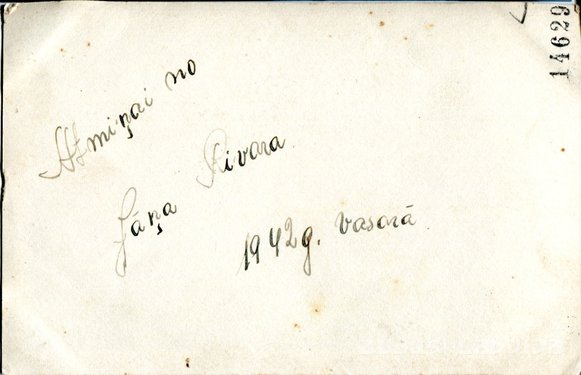 Atmiņai no
Jāņa Rivara
1942g. vasarā
14629